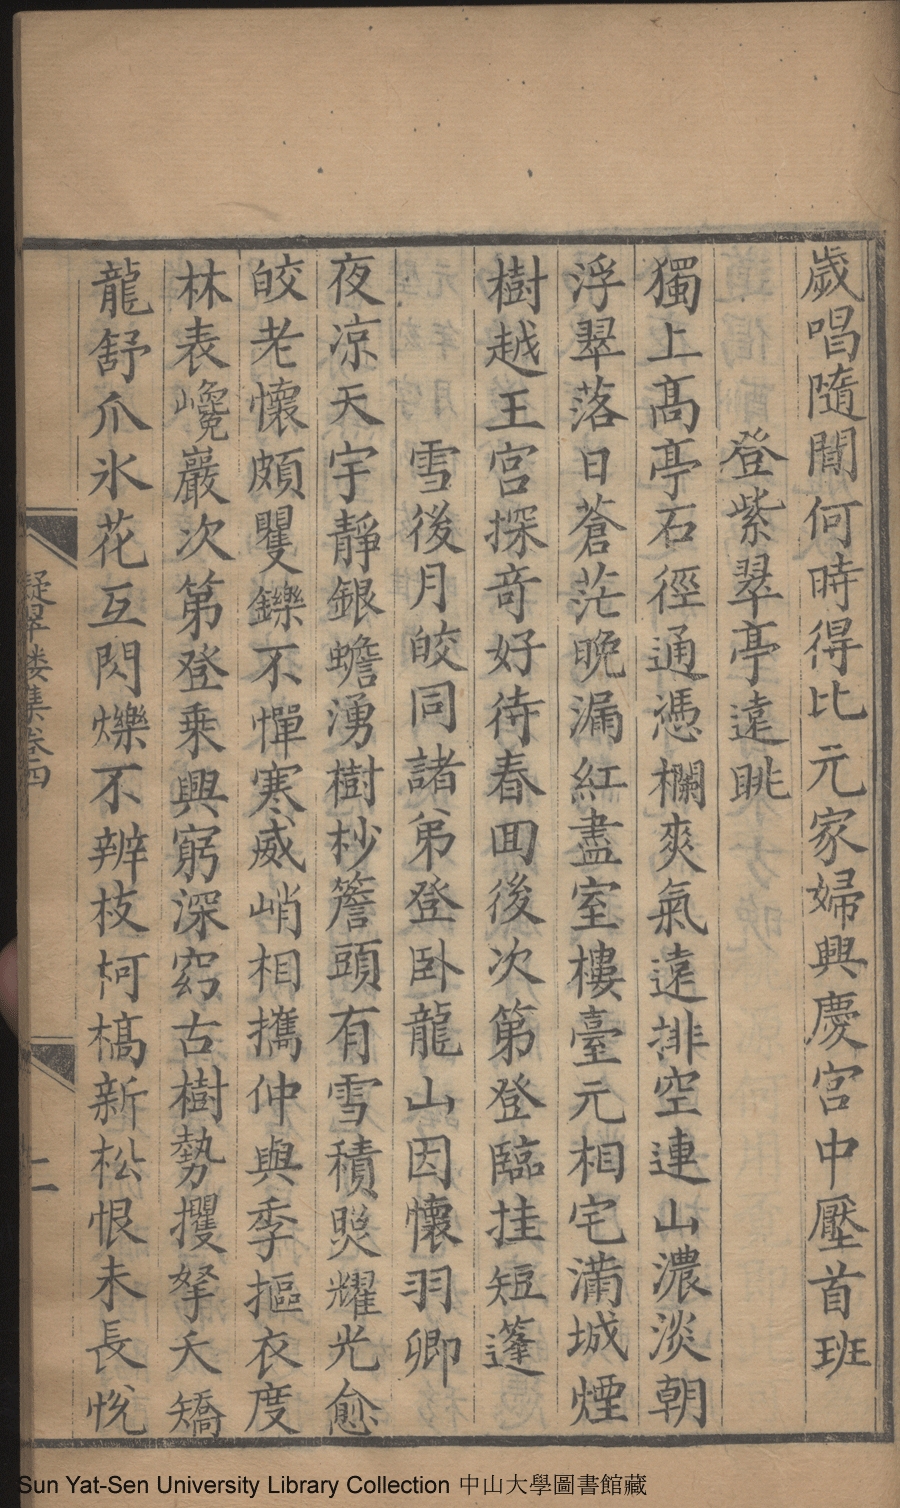 歲唱隨聞何時得比元家婦興慶宮中壓首班
登紫翠亭遠眺
獨上高亭石徑通憑欄爽氣遠排空連山濃淡朝
浮翠落日蒼茫晚漏紅盡室樓臺元相宅滿城煙
樹越王宮探奇好待春回後次第登臨挂短篷
雪後月皎同諸弟登卧龍山因懷羽卿
夜凉天宇靜銀蟾湧樹杪簷頭有雪積煚耀光愈
皎老懷頗矍鑠不憚寒威峭相攜仲與季摳衣度
林表巉巖次第登乘興窮深窈古樹勢攫拏夭矯
龍舒爪氷花互閃爍不辨枝柯槁新松恨未長恍
凝翠樓集卷四
二
Sun Yat-Sen University Library Collection 中山大學圖書館藏